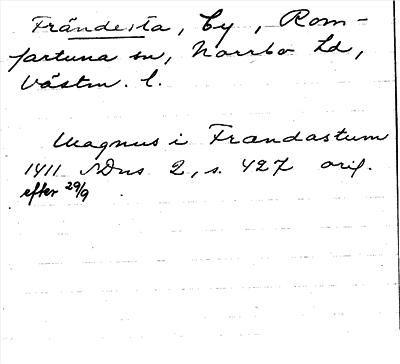 Frändesta, by, Rom-
fartuna sn, Norrbo hd,
Västm. l.
Magnus i Frandastum
1411 SDns 2, s. 427 orig.
efter 29/9